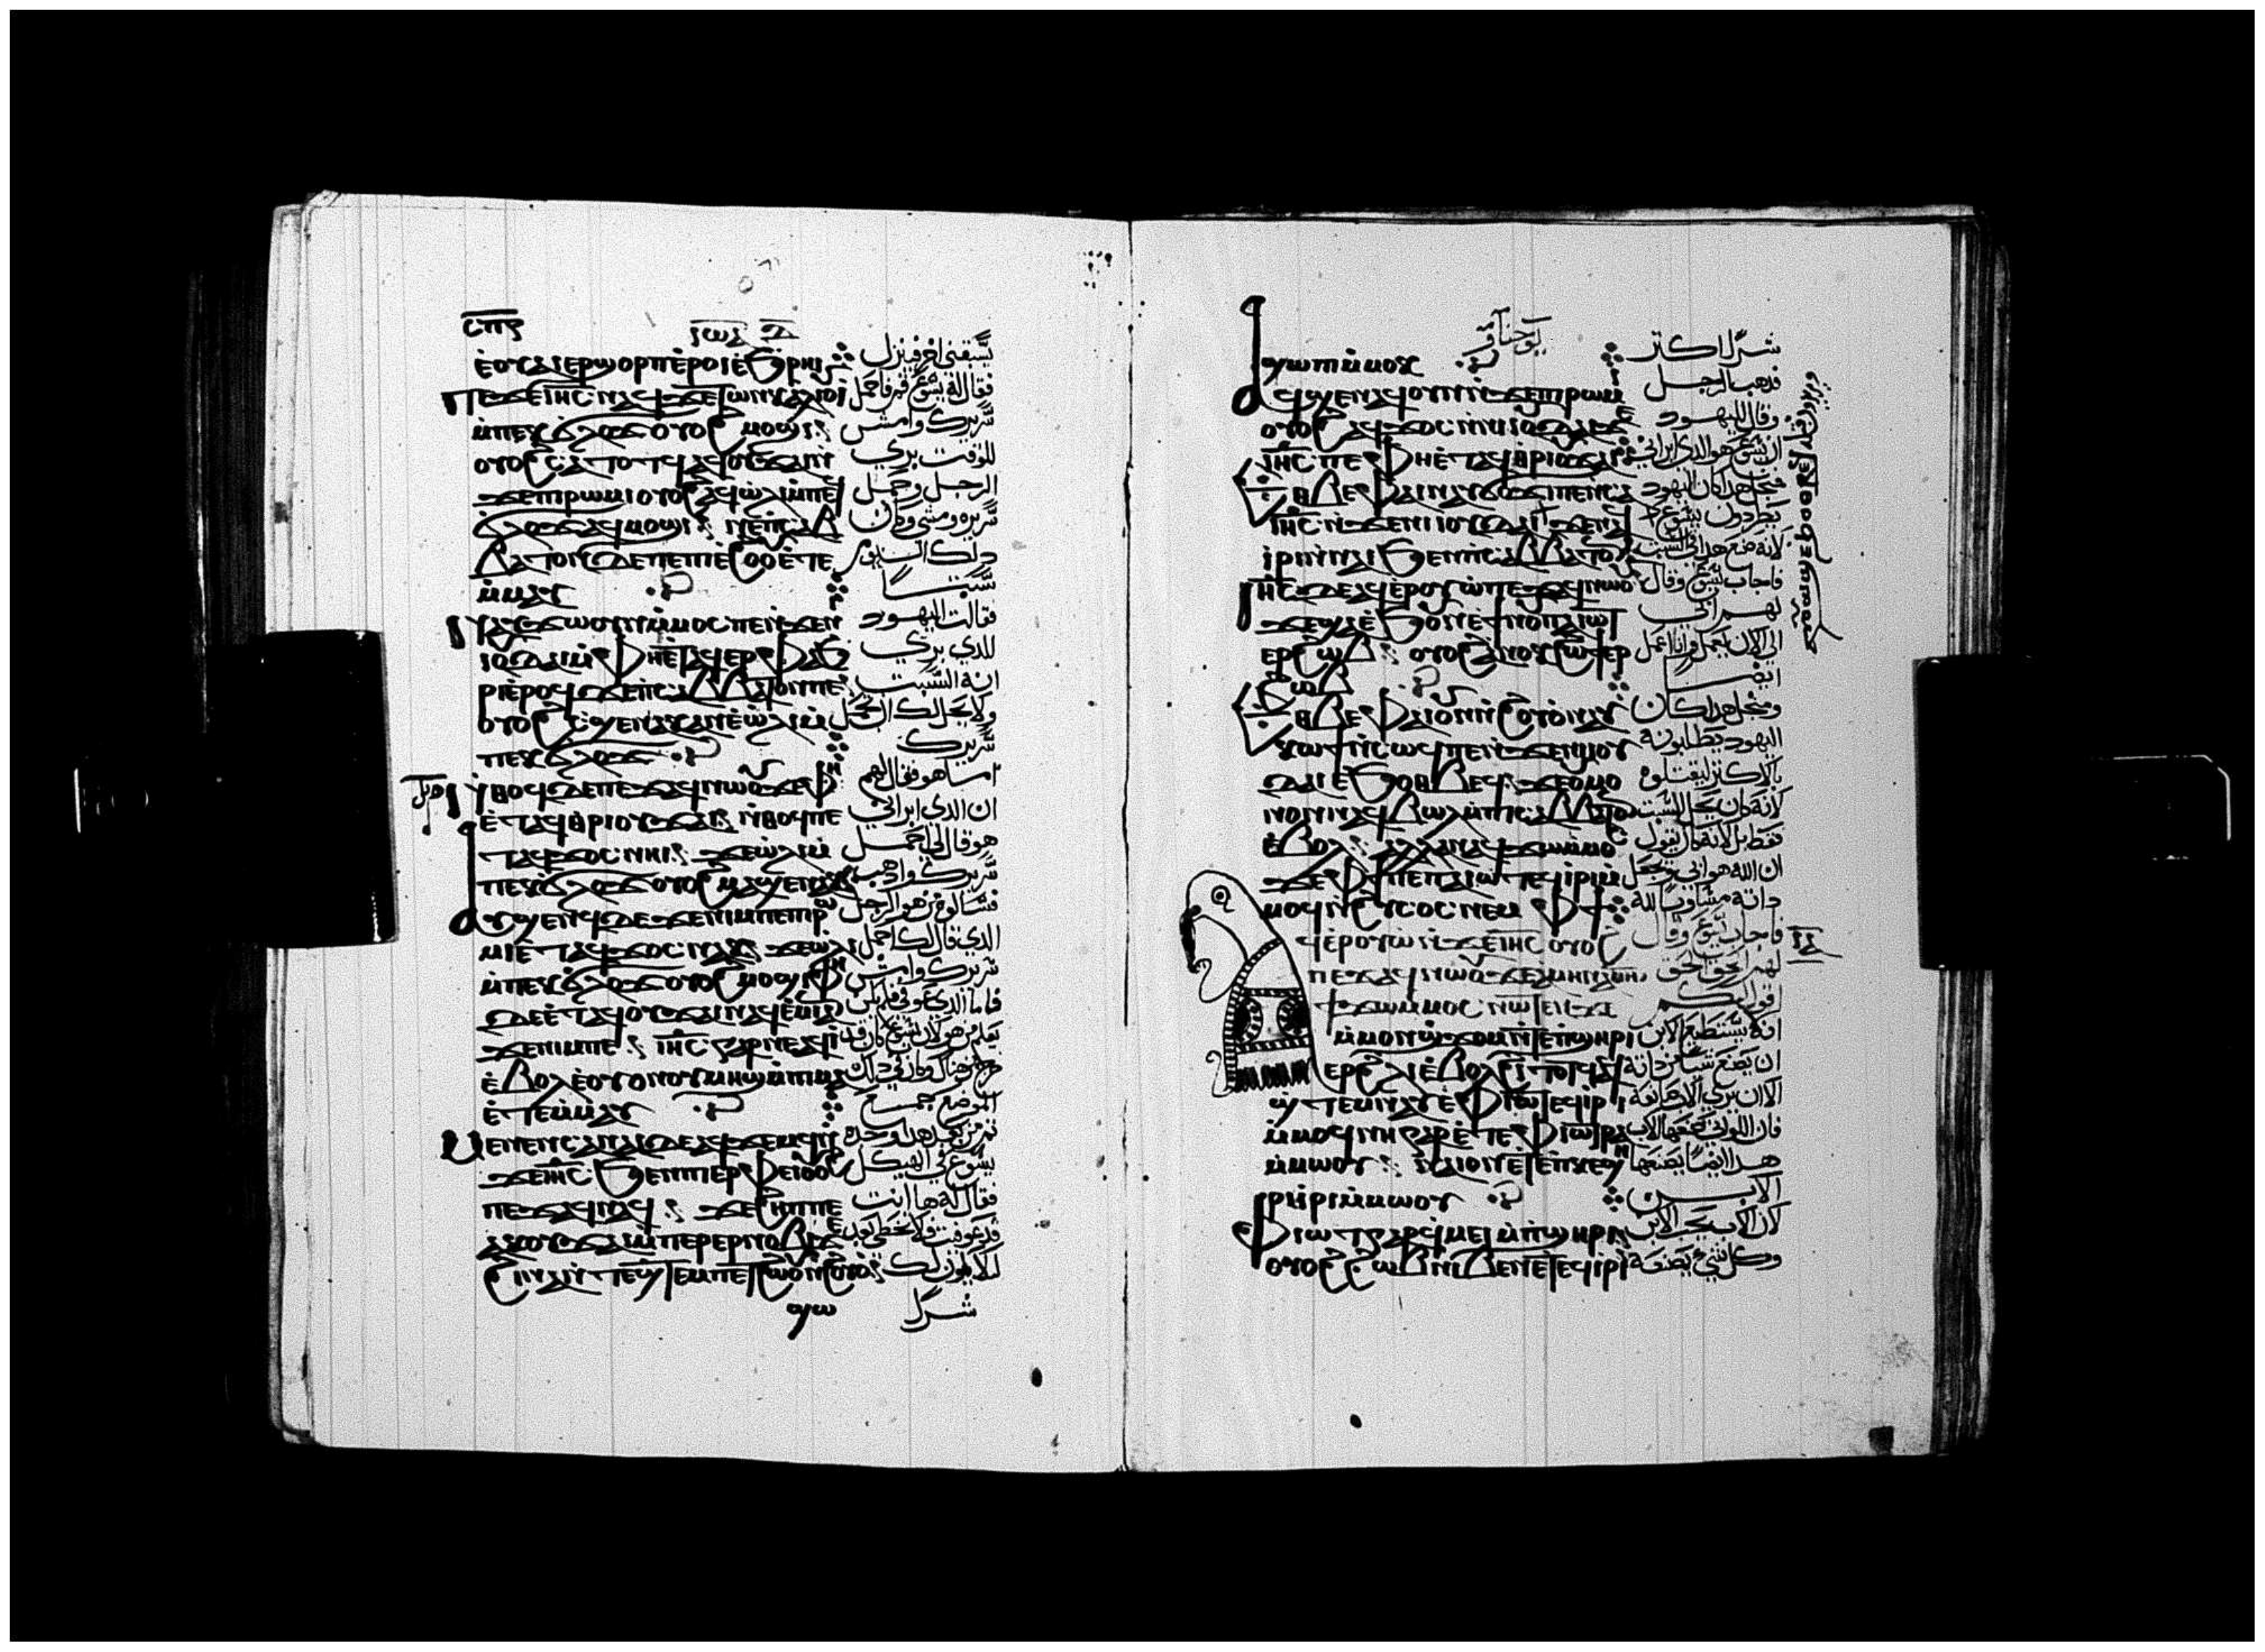 ⲥⲡⲋ
ⲓⲱⲁ
ⲉ̀ⲟⲩⲁⲓ ⲉⲣϣⲟⲣⲡ ⲉ̀ⲣⲟⲓ ⲉ̀ϧⲣⲏⲓ
ⲡⲉϫⲉ ⲓⲏⲥ ⲛⲁϥ ϫⲉ ⲧⲱⲛⲕ ⲁⲗⲓⲟⲩⲓ
ⲙ̀ⲡⲉⲕϭⲗⲟϫ ⲟⲩⲟϩ ⲙⲟϣⲓ
ⲟⲩⲟϩ ⲥⲁⲧⲟⲧϥ ⲁϥⲟⲩϫⲁⲓ ⲛ̀
ϫⲉ ⲡⲓⲣⲱⲙⲓ ⲟⲩⲟϩ ⲁϥⲱ̀ⲗⲓ ⲙ̀ⲡⲉϥ
ϭⲗⲟϫ ⲁϥⲙⲟϣⲓ ⲛⲉ ⲡⲥⲁⲃ
ⲃⲁⲧⲟⲛ ⲇⲉ ⲡⲉ ⲡⲓⲉ̀ϩⲟⲟⲩ ⲉ̀ⲧⲉ
ⲙ̀ⲙⲁⲩ
ⲛⲁⲩϫⲱ ⲟⲩⲛ ⲙ̀ⲙⲟⲥ ⲡⲉ ⲛ̀ϫⲉ ⲛⲓ
ⲓⲟⲩⲇⲁⲓ ⲙ̀ⲫⲏ ⲉ̀ⲧⲁϥⲉⲣⲫⲁϧ
ⲣⲓ ⲉ̀ⲣⲟϥ ϫⲉ ⲡⲥⲁⲃⲃⲁⲧⲟⲛ ⲡⲉ
ⲟⲩⲟϩ ⲥ̀ϣⲉ ⲛⲁⲕ ⲁⲛ ⲉ̀ⲱ̀ⲗⲓ ⲙ̀
ⲡⲉⲕϭⲗⲟϫ
ⲛ̀ⲑⲟϥ ⲇⲉ ⲡⲉϫⲁϥ ⲛⲱⲟⲩ ϫⲉ ⲫⲏ
ⲉ̀ⲧⲁϥⲑⲣⲓⲟⲩϫⲁⲓ ⲛ̀ⲑⲟϥ ⲡⲉ
ⲧⲁϥϫⲟⲥ ⲛⲏⲓ ϫⲉ ⲱ̀ⲗⲓ ⲙ̀
ⲡⲉⲕϭⲗⲟϫ ⲟⲩⲟϩ ⲙⲁϣⲉ ⲛⲁⲕ
ⲁⲩϣⲉⲛϥ ⲇⲉ ϫⲉ ⲛⲓⲙ ⲡⲉ ⲡⲓⲣⲱ
ⲙⲓ ⲉ̀ⲧⲁϥϫⲟⲥ ⲛⲁⲕ ϫⲉ ⲱ̀ⲗⲓ
ⲙ̀ⲡⲉⲕϭⲗⲟϫ ⲟⲩⲟϩ ⲙⲟϣⲓ ⲫⲏ
ⲇⲉ ⲉ̀ⲧⲁϥⲟⲩϫⲁⲓ ⲛⲁϥⲉ̀ⲙⲓ ⲁⲛ
ϫⲉ ⲛⲓⲙ ⲡⲉ ⲓⲏⲥ ⲅⲁⲣ ⲛⲉ ⲁϥⲓ̀
ⲉ̀ⲃⲟⲗ ⲉ ⲟⲩⲟⲛ ⲟⲩⲙⲏϣ ⲙ̀ⲡⲓⲙⲁ
ⲉ̀ⲧⲉⲙ̀ⲙⲁⲩ
ⲙⲉⲛⲉⲛⲥⲁ ⲛⲁⲓ ⲇⲉ ⲁϥϫⲉⲙϥ ⲛ̀
ϫⲉ ⲓⲏⲥ ϧⲉⲛ ⲡⲓⲉⲣⲫⲉⲓ ⲟⲩⲟϩ
ⲡⲉϫⲁϥ ⲛⲁϥ ϫⲉ ϩⲏⲡⲡⲉ
ⲁⲕⲟⲩϫⲁⲓ ⲙ̀ⲡⲉⲣⲉⲣⲛⲟⲃⲓ ϫⲉ
ϩⲓⲛⲁ ⲛ̀ⲧⲉϣⲧⲉⲙ ⲡⲉⲧϩⲱⲟⲩ ⲛ̀ϩⲟⲩⲟ
ϣⲱ
يسبقني اخر فينزل
فقال له يسوع قم فاحمل
سريرك وامش
للوقت بري
الرجل وحمل
سريره ومشى وكان
دلك اليوم
سبتا
فقالت اليهود
للدي بري
انه السبت
ولا يحل لك ان تحمل
سريرك
اما هو فقال لهم
ان الدي ابراني
هو قال لي احمل
سريرك وادهب
فسالوه من هو الرجل
الدي قال لك احمل
سريرك وامش
فاما الدي عوفي فلم يكن
يعلم من هو لان يسوع كان قد
خرج من هناك وكان في دلك
الموضع جمع
ثم من بعد هدا وجده
يسوع في الهيكل
فقال له ها انت
قد عوفيت فلا تخطي بعد
ليلا يكون لك
شر
يوحنا
ϣⲱⲡⲓ ⲙ̀ⲙⲟⲕ
ⲁϥϣⲉ ⲛⲁϥ ⲟⲩⲛ ⲛ̀ϫⲉ ⲡⲓⲣⲱⲙⲓ
ⲟⲩⲟϩ ⲁϥϫⲟⲥ ⲛ̀ⲛⲓⲓⲟⲩⲇⲁⲓ ϫⲉ
ⲓⲏⲥ ⲡⲉ ⲫⲏ ⲉ̀ⲧⲁϥⲑⲣⲓⲟⲩϫⲁⲓ
ⲉⲑⲃⲉ ⲫⲁⲓ ⲛⲁⲩϭⲟϫⲓ ⲡⲉ ⲛ̀ⲥⲁ
ⲓⲏⲥ ⲛ̀ϫⲉ ⲛⲓⲓⲟⲩⲇⲁⲓ ϫⲉ ⲛⲁϥ
ⲓ̀ⲣⲓ ⲛ̀ⲛⲁⲓ ϧⲉⲛ ⲡⲥⲁⲃⲃⲁⲧⲟⲛ
ⲓⲏⲥ ⲇⲉ ⲁϥⲉⲣⲟⲩⲱ̀ ⲡⲉϫⲁϥ ⲛⲱⲟⲩ
ϫⲉ ϣⲁ ⲉ̀ϧⲟⲩⲛ ⲉ̀ϯⲛⲟⲩ ⲡⲁⲓⲱⲧ
ⲉⲣϩⲱⲃ ⲟⲩⲟϩ ⲁ̀ⲛⲟⲕ ϩⲱ ϯⲉⲣ
ϩⲱⲃ
ⲉⲑⲃⲉ ⲫⲁⲓ ⲟⲩⲛ ⲛ̀ϩⲟⲩⲟ̀ ⲛⲁⲩ
ⲕⲱϯ ⲛ̀ⲥⲱϥ ⲡⲉ ⲛ̀ϫⲉ ⲛⲓⲓⲟⲩ
ⲇⲁⲓ ⲉ̀ϧⲟⲑⲃⲉϥ ϫⲉ ⲟⲩ ⲙⲟ
ⲛⲟⲛ ⲛⲁϥⲃⲱⲗ ⲙ̀ⲡⲥⲁⲃⲃⲁⲧⲟⲛ
ⲉ̀ⲃⲟⲗ ⲁⲗⲗⲁ ⲛⲁϥϫⲱ ⲙ̀ⲙⲟⲥ
ϫⲉ ⲫϯ ⲡⲉ ⲡⲁⲓⲱⲧ ⲉϥⲓ̀ⲣⲓ ⲙ̀
ⲙⲟϥ ⲛ̀ϩⲩⲥⲟⲥ ⲛⲉⲙ ⲫϯ
ⲁϥⲉⲣⲟⲩⲱ̀ ⲛ̀ϫⲉ ⲓⲏⲥ ⲟⲩⲟϩ
ⲡⲉϫⲁϥ ⲛⲱⲟⲩ ϫⲉ ⲁⲙⲏⲛ ⲁⲙⲏⲛ
ϯϫⲱ ⲙ̀ⲙⲟⲥ ⲛⲱⲧⲉⲛ ϫⲉ
ⲙ̀ⲙⲟⲛ ϣϫⲟⲙ ⲛ̀ⲧⲉ ⲡϣⲏⲣⲓ
ⲉⲣ ϩⲗⲓ ⲉ̀ⲃⲟⲗ ϩⲓⲧⲟⲧϥ ⲁ
ϣⲧⲉⲙⲛⲁⲩ ⲉ̀ⲫⲓⲱⲧ ⲉϥⲓ̀ⲣⲓ
ⲙ̀ⲙⲟϥ ⲛⲏ ⲅⲁⲣ ⲉ̀ⲧⲉ ⲫⲓⲱⲧ ⲣⲁ
ⲙ̀ⲙⲱⲟⲩ ⲛⲁⲓ ⲟⲛ ⲉ̀ⲧⲉ ⲡⲕⲉϣⲏ
ⲣⲓ ⲓ̀ⲣⲓ ⲙ̀ⲙⲱⲟⲩ
ⲫⲓⲱⲧ ⲅⲁⲣ ϥ̀ⲙⲉⲓ ⲙ̀ⲡϣⲏⲣⲓ
ⲟⲩⲟϩ ϩⲱⲃ ⲛⲓⲃⲉⲛ ⲉ̀ⲧⲉϥⲓ̀ⲣⲓ
شرا اكتر
فدهب الرجل
وقال لليهود
ان يسوع هو الدي ابراني
من اجل هدا كان اليهود
يطردون يسوع
لانه صنع هدا في السبت
فاجاب يسوع وقال
لهم ابي
الى الان يعمل وانا اعمل
ايضا
ومن اجل هدا كان
اليهود يطلبونه
بالاكتر ليقتلوه
لانه كان يحل السبت
فقط بل لانه كان يقول
ان الله هو ابي ويجعل
داته مساويا لله
فاجاب يسوع وقال
لهم الحق الحق
اقول لكم
انه يستطيع الابن
ان يصنع شيا من داته
الا ان يري الاب صانعه
فان التي يصنعها الاب
هدا ايضا يصنعها
الابن
لان الاب يحب الابن
وكل شي يصنعه
ⲓⲋ